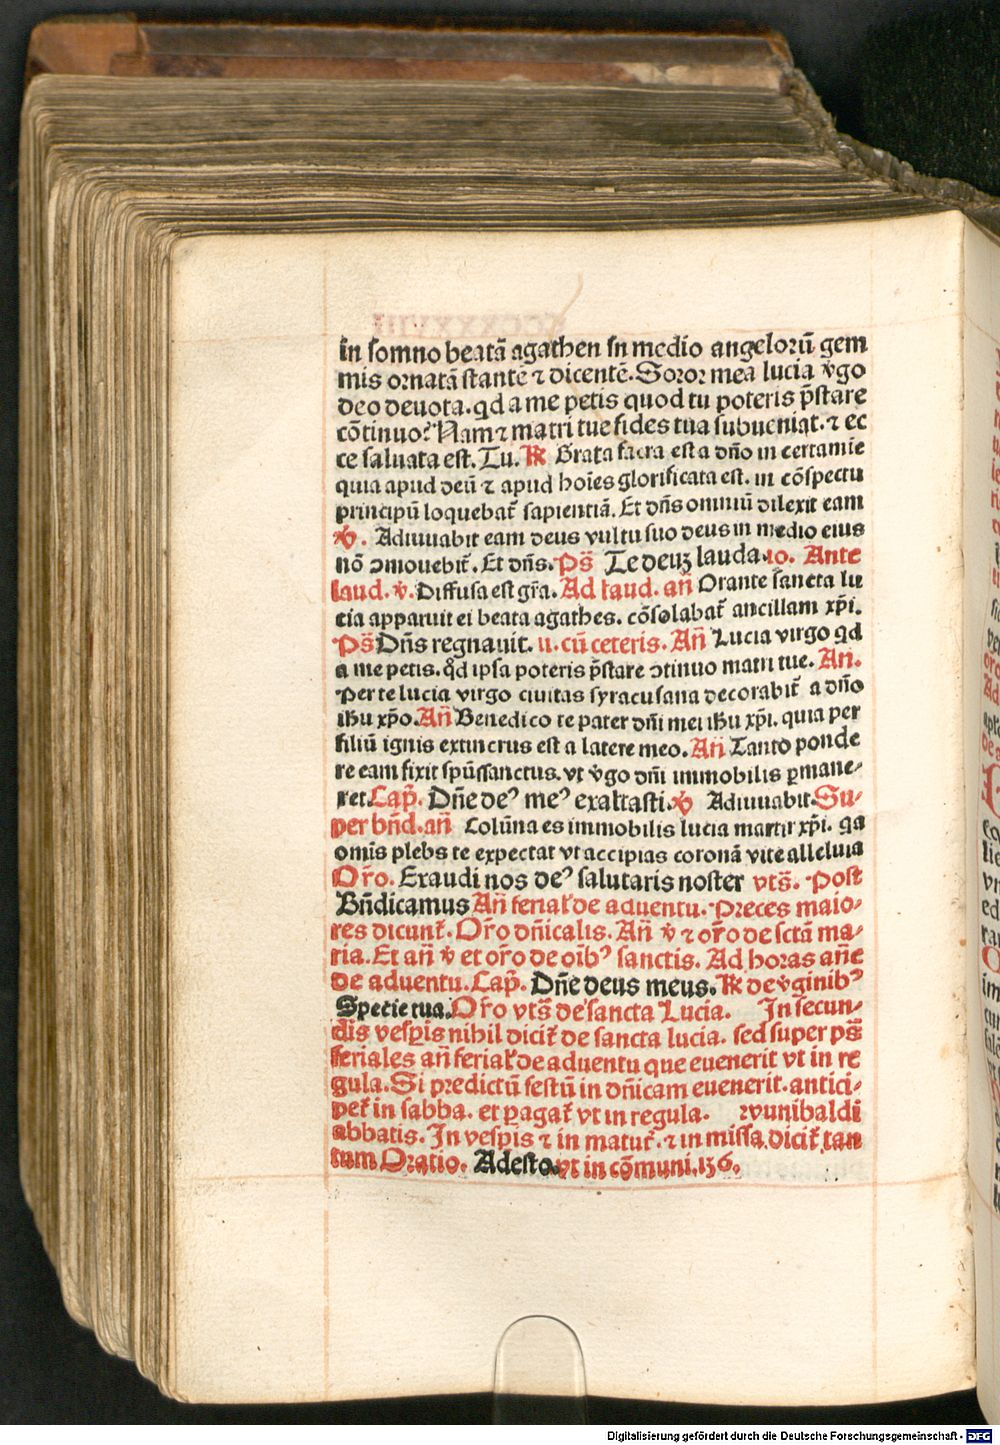 in somno beatā agathen in medio angelorū gem
mis ornatā stantē ⁊ dicentē. Soror mea lucia v̔go
deo deuota. qd a me petis quod tu poteris p̄stare
cōtinuo? Nam ⁊ matri tue fides tua subuenit. ⁊ ec
ce saluata est. Tu. ℟ Grata facra est a dn̄o in certamie
quia apud deū ⁊ apud hoīes glorificata est. in cōspectu
principū loquebat̄ sapientiā. Et dn̄s omniū dilexit eam
℣. Adiuuabit eam deus vultu suo deus in medio eius
nō ↄmouebit̄. Et dn̄s. Ps̄ Te deuꝫ lauda. io. Ante
laud. ℣. Diffusa est gr̄a. Ad laud. an̄ Orante sancta lu
cia apparuit ei beata agathes. cōsolabat̄ ancillam xp̄i.
Ps̄ Dn̄s regnauit. ii. cū ceteris. An̄ Lucia virgo qd
a me petis. qd̄ ipsa poteris p̄stare ↄtinuo matri tue. An̄.
Per te lucia virgo ciuitas syracusana decorabit̄ a dn̄o
ihu xp̄o. An̄ Benedico te pater dn̄i mei ihu xp̄i. quia per
filiū ignis extincrus est a latere meo. An̄ Tanto ponde
re eam fixit spūssanctus. vt v̔go dn̄i immobilis ꝑmane-
ret. Cap̄. Dn̄e deꝰ meꝰ exaltasti. ℣ Adiuuabit. Su-
per bn̄d. an̄ Colūna es immobilis lucia martir xp̄i. qa
omīs plebs te expectat vt accipias coronā vite alleluia
Or̄o. Exaudi nos deꝰ salutaris noster vts̄. Post
Bn̄dicamus An̄ ferial̄ de aduentu. Preces maio-
res dicunt̄. Or̄o dn̄icalis. An̄ ℣ ⁊ or̄o de sctā ma-
ria. Et an̄ ℣ et or̄o de oībꝰ sanctis. Ad horas an̄e
de aduentu. Cap̄. Dn̄e deus meus. ℟ de v̔ginibꝰ
Specie tua. Or̄o vts̄ de sancta Lucia. In secun-
dis vesꝑis nihil dicit̄ de sancta lucia. sed super ps̄
feriales an̄ ferial̄ de aduentu que euenerit vt in re
gula. Si predictū festū in dn̄icam euenerit. antici-
pet̄ in sabba. et ꝑagat̄ vt in regula. wunibaldi
abbatis. In vesꝑis ⁊ in matut̄. ⁊ in missa dicit̄ tan
tum Oratio. Adesto. vt in cōmuni. 156.
Digitalisierung gefördert durch die Deutsche Forschungsgemeinschaft - DFG